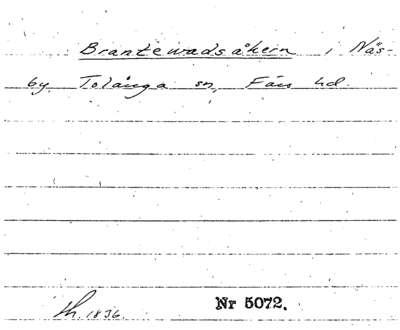 Brantewadsåkern i Näs-
by Tolånga sn, Färs hd.
1836. Nr 5072.